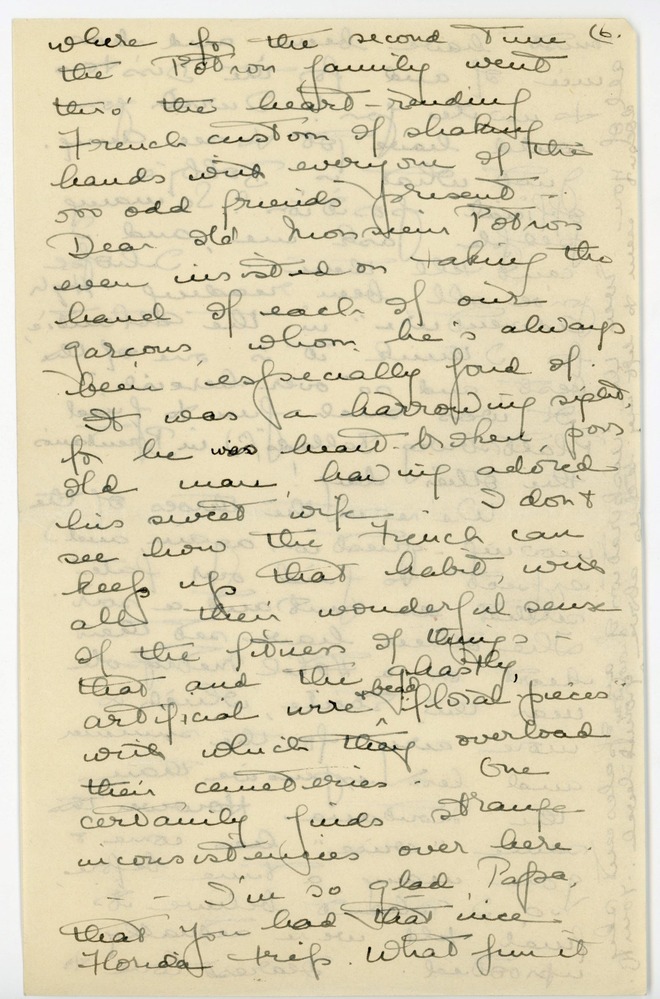 where for the second time 16.
the Potron family went
thro' the heart-rending
French custom of shaking
hands with everyone of the
500 odd friends present -
Dear old Monsieur Potron
even insisted on taking the
hand of each of our
garcons, whom he's always
been especially fond of.
It was a harrowing sight,
for he was heart-broken, poor
old man, having adored
his sweet wife. I don't
see how the French can
keep up that habit, with
all their wonderful sense
of the fitness of things -
that and the ghastly,
artificial wire & bead "floral pieces"
with which they overload
their cemeteries. One
certainly finds strange
inconsistencies over here.
- - I'm so glad, Papa,
that you had that nice
Florida trip. What fun it